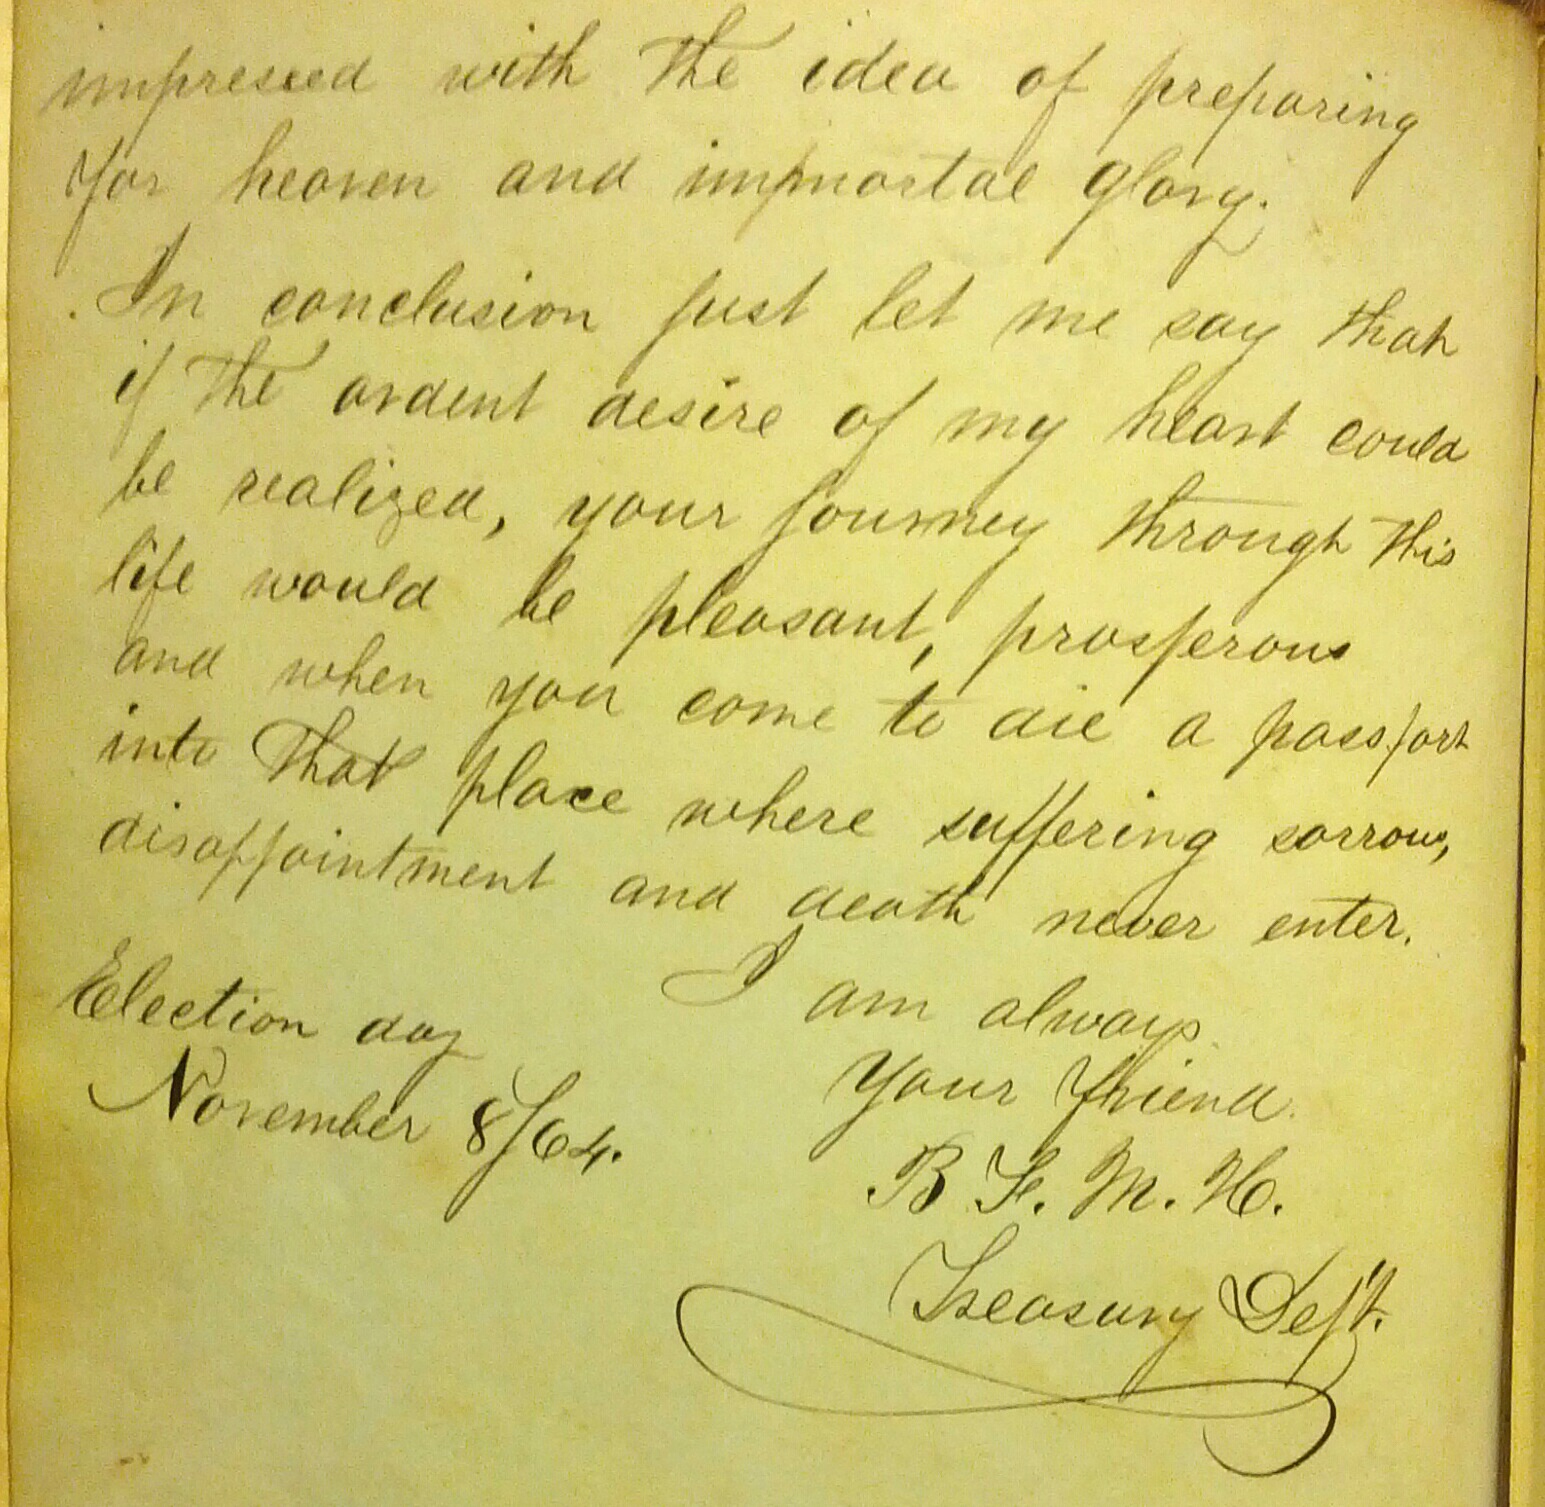 impressed with the idea of preparing
for heaven and immortal glory.
In conclusion just let me say that
if the ardent desire of my heart could
be realized, your journey through this
life would be pleasant, prosperous
and when you come to die a passport
into that place where suffering sorrow,
disappointment and death never enter.
I am always
Your friend.
B F. M. H.
Treasury Dep't.
Election day
November 8/64.